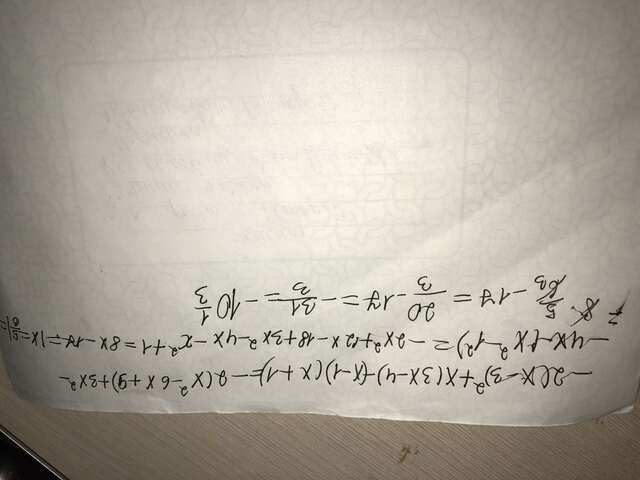 -2(x-3)²+x(3x-4)-(x-1)(x+1)=-2(x²-6x+9)+3x²-
-4x-(x²-1²)=-2x²+12x-18+3x²-4x-x²+1=8x-17=|x=5/6|=
=8·5/6₃-17=20/3-17=-31/3=-10 1/3